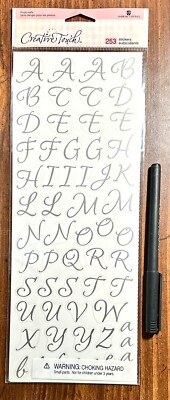 Creative Touch
253 stickers
A A A B
B C C D
D E E E
F F G G H
H I I I J K
K L L M M
N N N O O O
P P Q R R
S S S T T
U U V W W
X Y Y Z a
b a
WARNING: CHOKING HAZARD
Small parts. Not for children under 3 years.